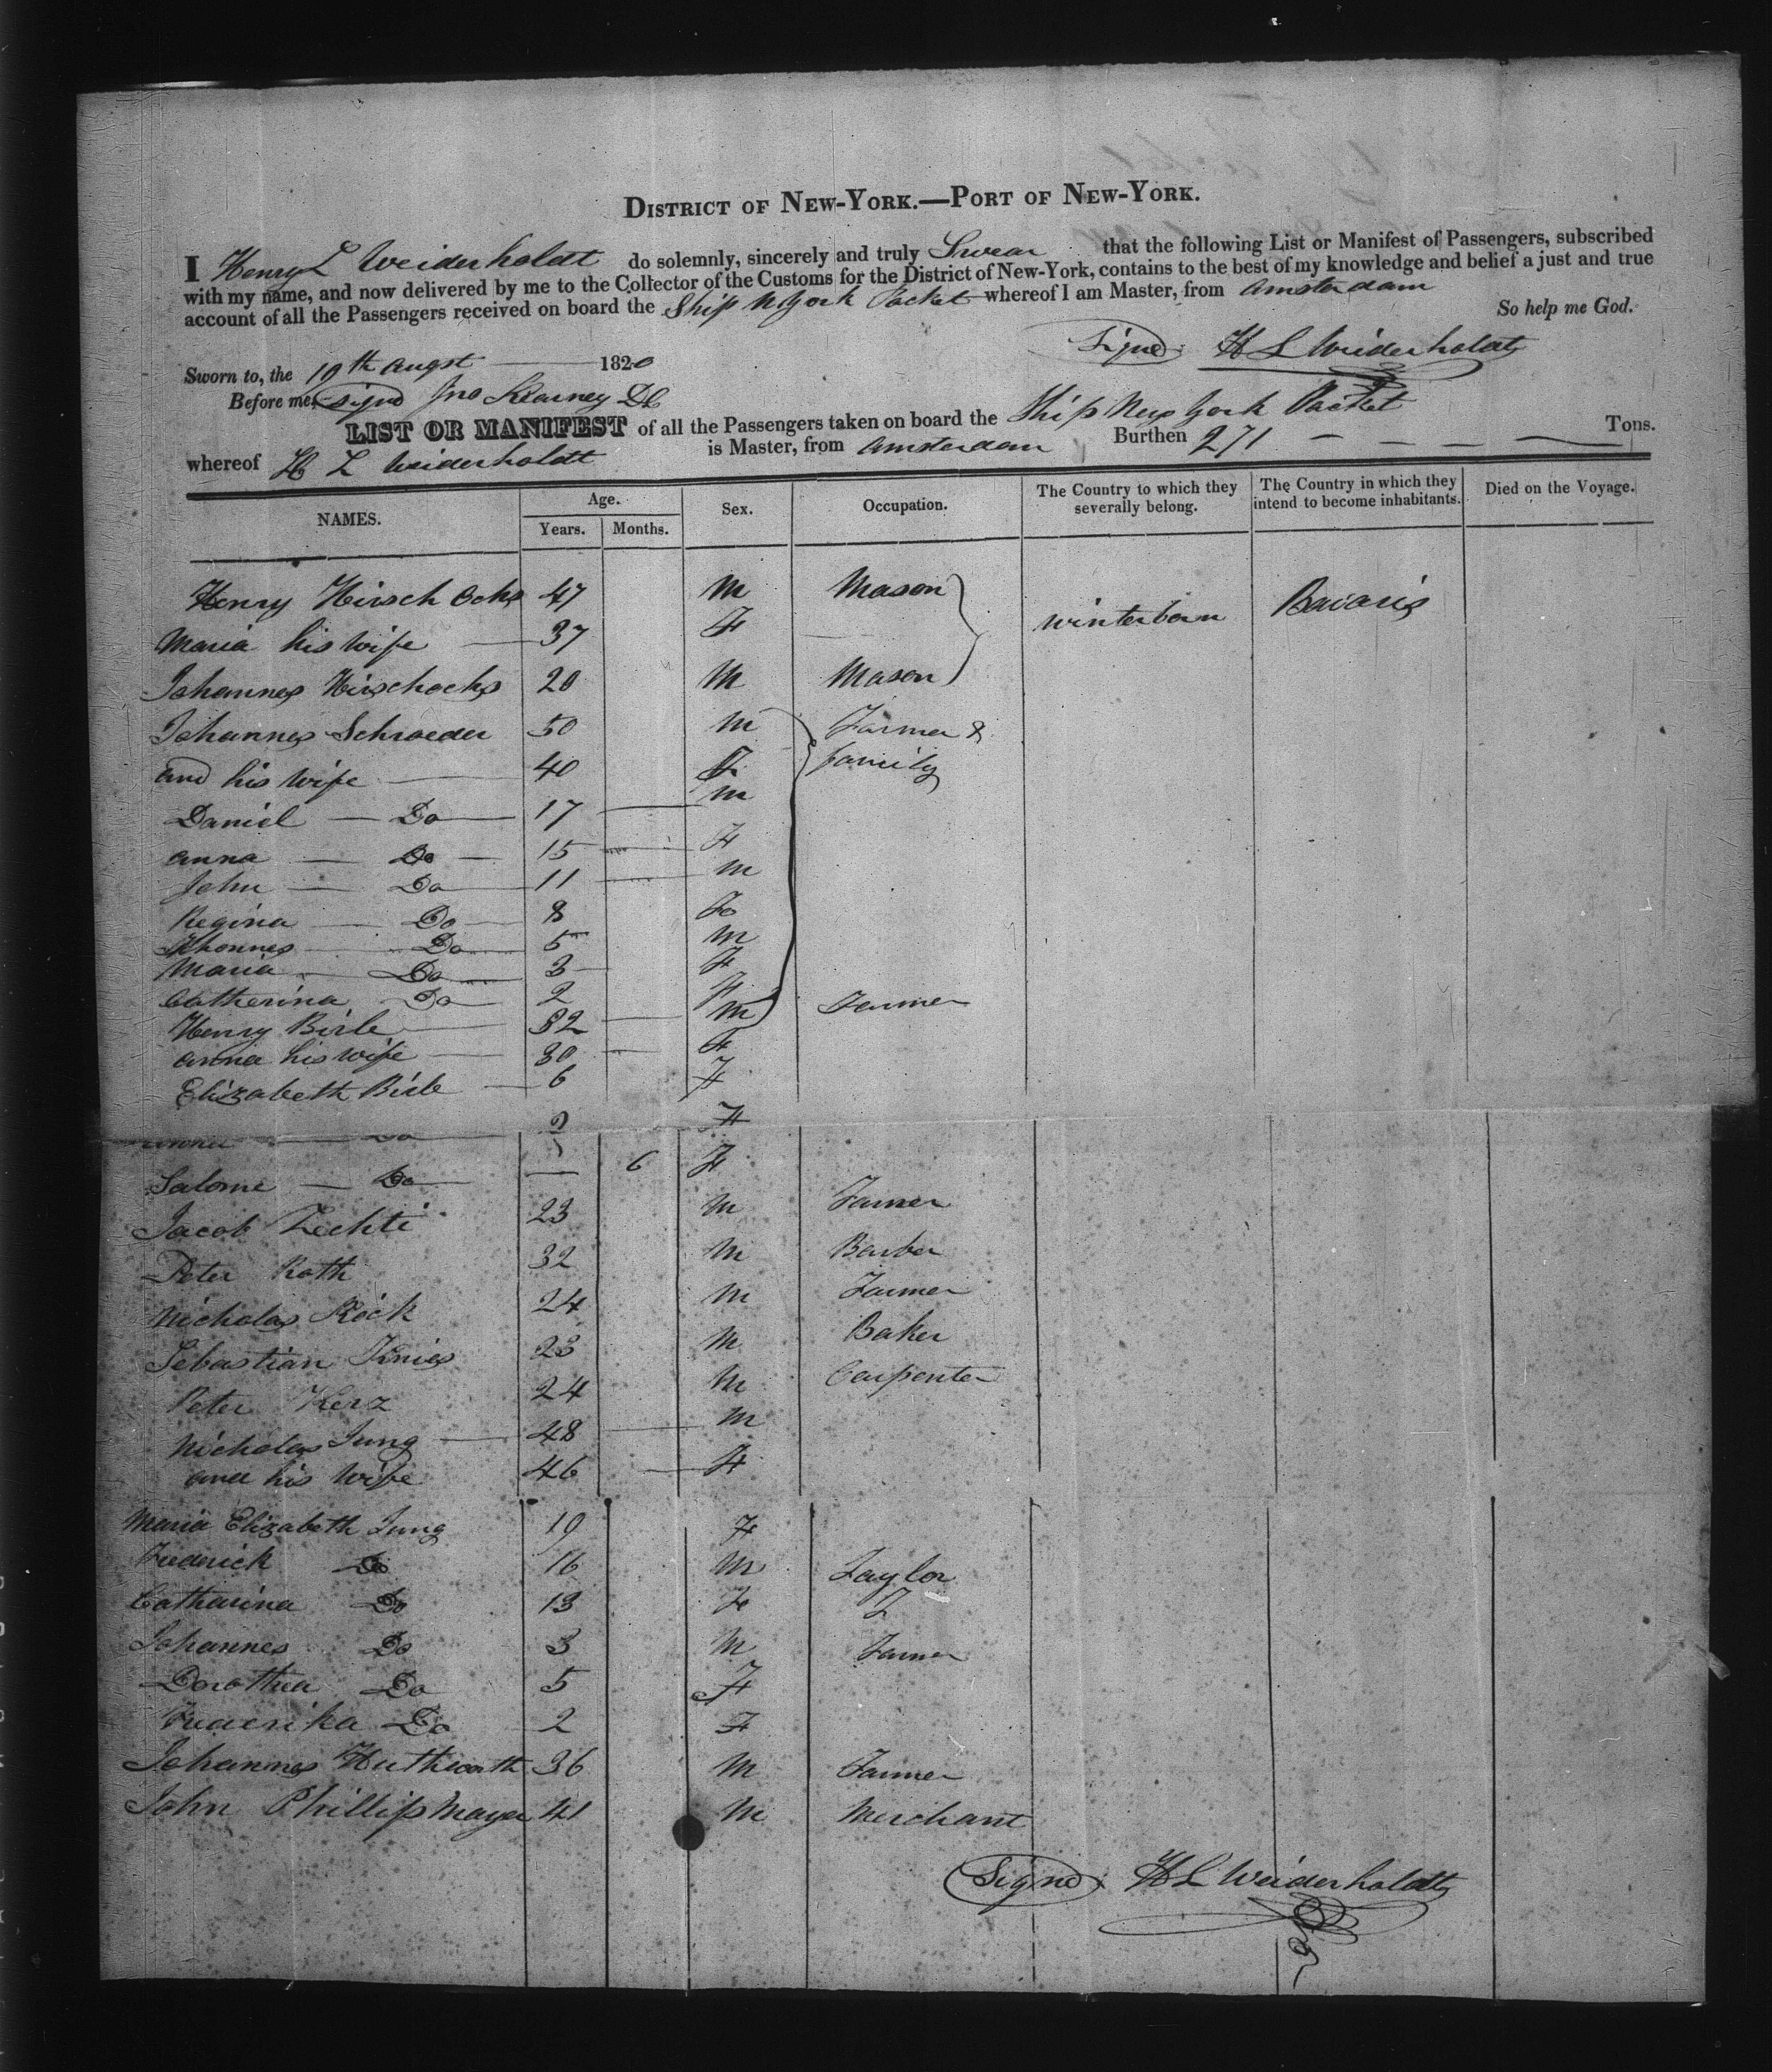 DISTRICT OF NEW-YORK.—PORT OF NEW-YORK.
I Henry L Weiderholdt do solemnly, sincerely and truly Swear that the following List or Manifest of Passengers, subscribed
with my name, and now delivered by me to the Collector of the Customs for the District of New-York, contains to the best of my knowledge and belief a just and true
account of all the Passengers received on board the Ship NYork Packet whereof I am Master, from Amsterdam
So help me God.
Signed H L Weiderholdt
Sworn to, the 19th Augst 1820
Before me, signd Jno Kearney DC
LIST OR MANIFEST of all the Passengers taken on board the Ship New York Packet
whereof H L Weiderholdt is Master, from Amsterdam Burthen 271 Tons.
NAMES. Age. Years. Months. Sex. Occupation. The Country to which they severally belong. The Country in which they intend to become inhabitants. Died on the Voyage.
Henry Hirsch Ochs 47 M Mason winterborn Bavaria
Maria his wife 37 F
Johannes Hirschochs 20 M Mason
Johannes Schroeder 50 M Farmer &
and his wife 40 F family
Daniel Do 17 M
Anna Do 15 F
John Do 11 M
Regina Do 8 F
Do 5 M
Maria Do 3 F
Catharina Do 2 F
Henry Birle 32 M Farmer
Anna his wife 30 F
Elizabeth Birle 6 F
Anna Do 2 F
Salome Do 6 F
Jacob Zechti 23 M Farmer
Peter Roth 32 M Barber
Nicholas Köck 24 M Farmer
Sebastian Knies 23 M Baker
Peter Herz 24 M Carpenter
Nicholas Jung 48 M
and his wife 46 F
Maria Elizabeth Jung 19 F
Frederick Do 16 M Taylor
Catharina Do 13 F
Johannes Do 3 M Farmer
Dorothea Do 5 F
Frederika Do 2 F
Johannes Huthworth 36 M Farmer
John Phillip Mayer 41 M Merchant
Signd H L Weiderholdt